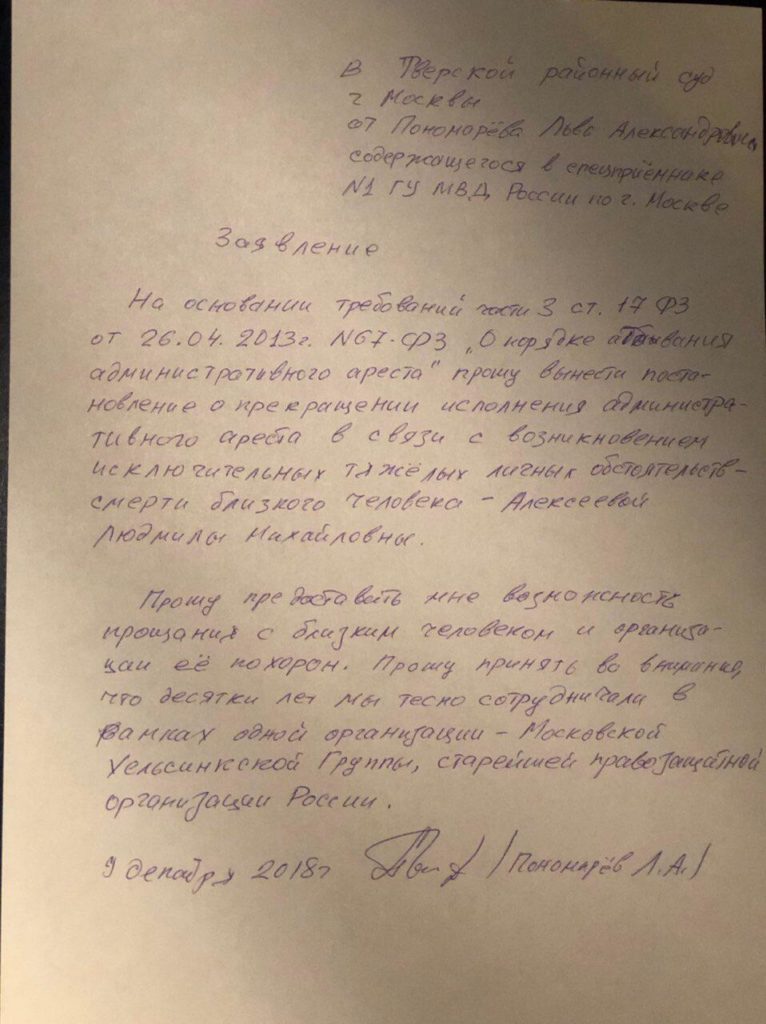 В Тверской районный суд
г Москвы
от Пономарёва Льва Александровича
содержащегося в спецприёмнике
N1 ГУ МВД России по г. Москве
Заявление
На основании требований части 3 ст. 17 ФЗ
от 26.04.2013г. N67-ФЗ „О порядке отбывания
административного ареста" прошу вынести поста-
новление о прекращении исполнения администра-
тивного ареста в связи с возникновением
исключительных тяжёлых личных обстоятельств-
смерти близкого человека - Алексеевой
Людмилы Михайловны.
Прошу предоставить мне возможность
прощания с близким человеком и организа-
ции её похорон. Прошу принять во внимание,
что десятки лет мы тесно сотрудничали в
рамках одной организации - Московской
Хельсинкской Группы, старейшей правозащитной
организации России.
9 декабря 2018г /Пономарёв Л.А./